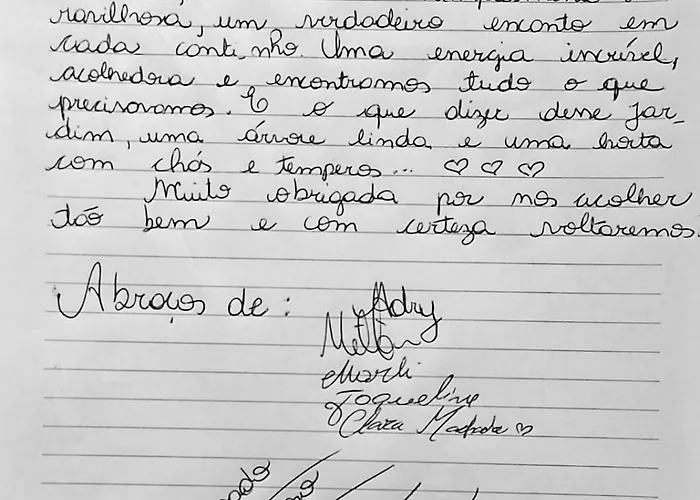 ravilhosa, um verdadeiro enconto em
cada conti nho. Uma energia incrível,
acolhedora e encontramos tudo o que
precisavamos. E o que dizer desse jar_
dim, uma árvore linda e uma horta
com chás e temperos... ♡ ♡ ♡
Muito obrigada por nos acolher
tão bem e com certeza voltaremos.
Abraços de: Adry
Marli
Joqueline
Clara Machado ♡